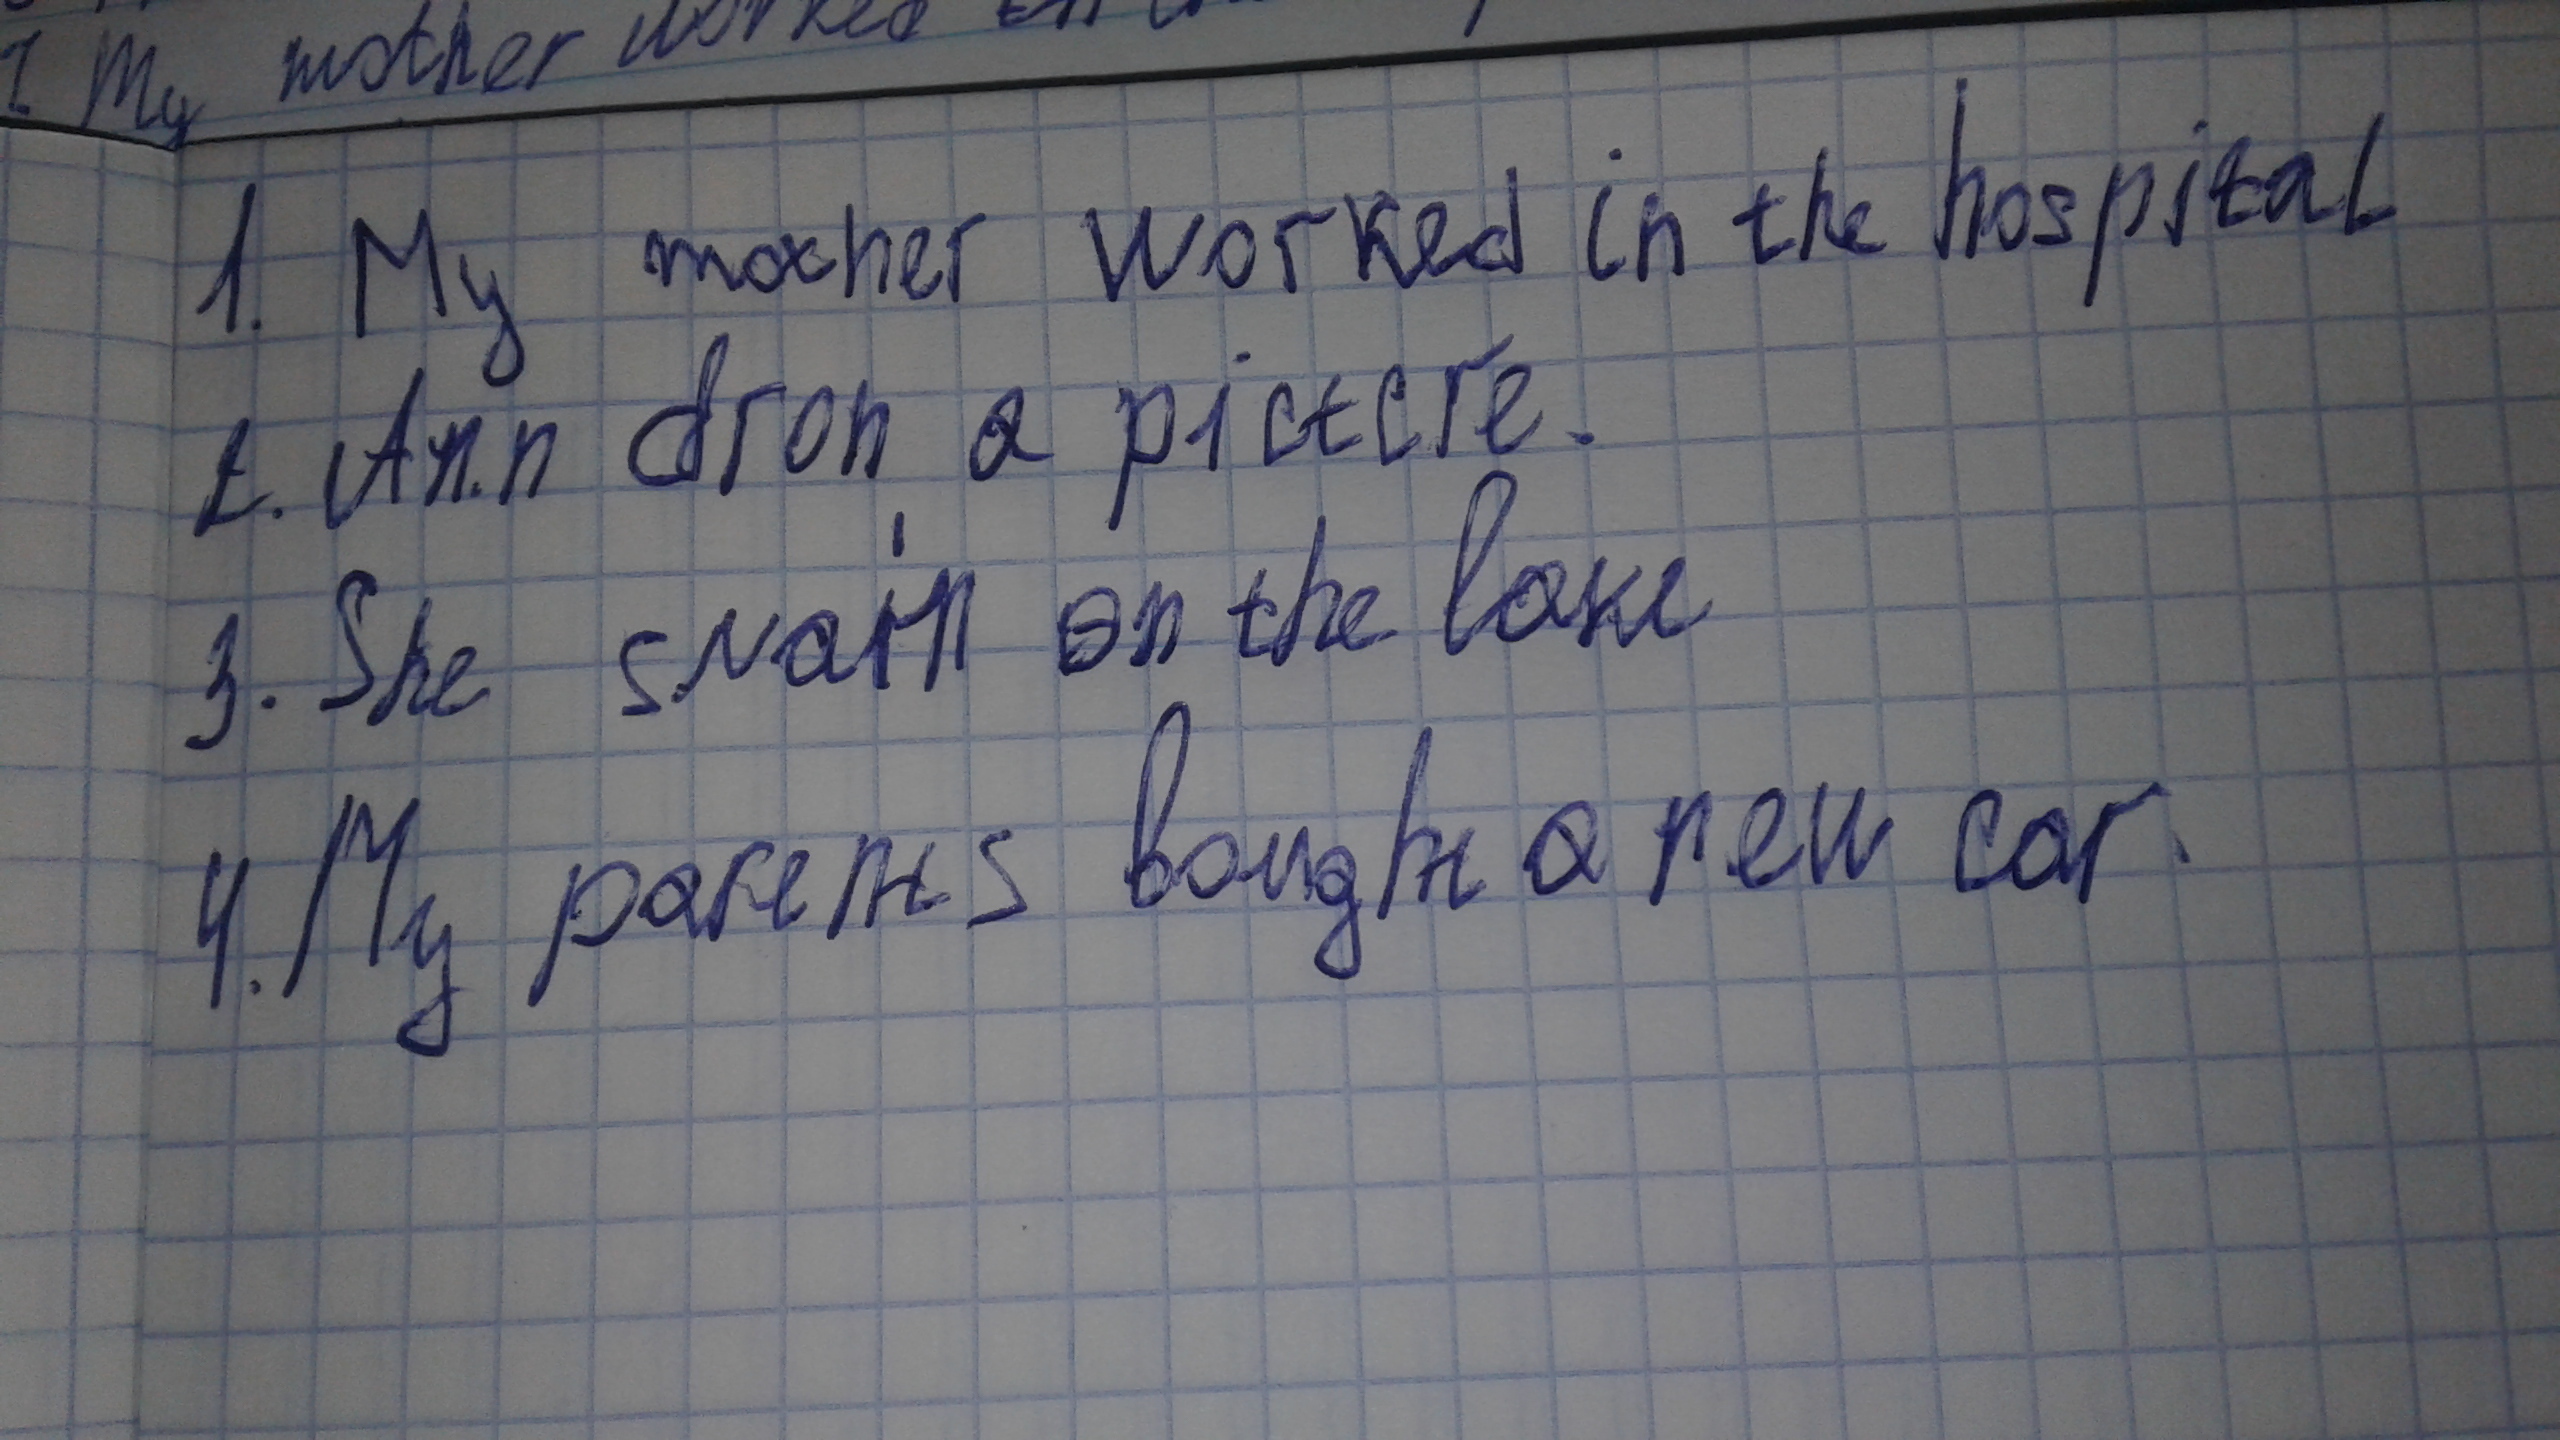 My mother worked
1. My mother worked in the hospital
2. Ann dron a pictcre.
3. She swam on the lake
4. My parents bought a new car.